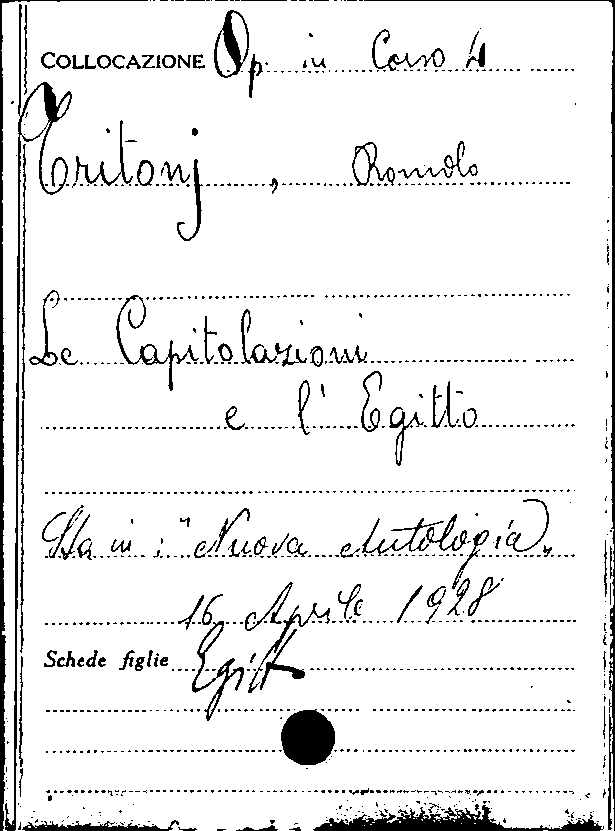 COLLOCAZIONE Op. in Corso 4
Tritonj, Romolo
Le Capitolazioni
e l'Egitto
Sta in: "Nuova Antologia"
16 Aprile 1928
Schede figlie Egitto